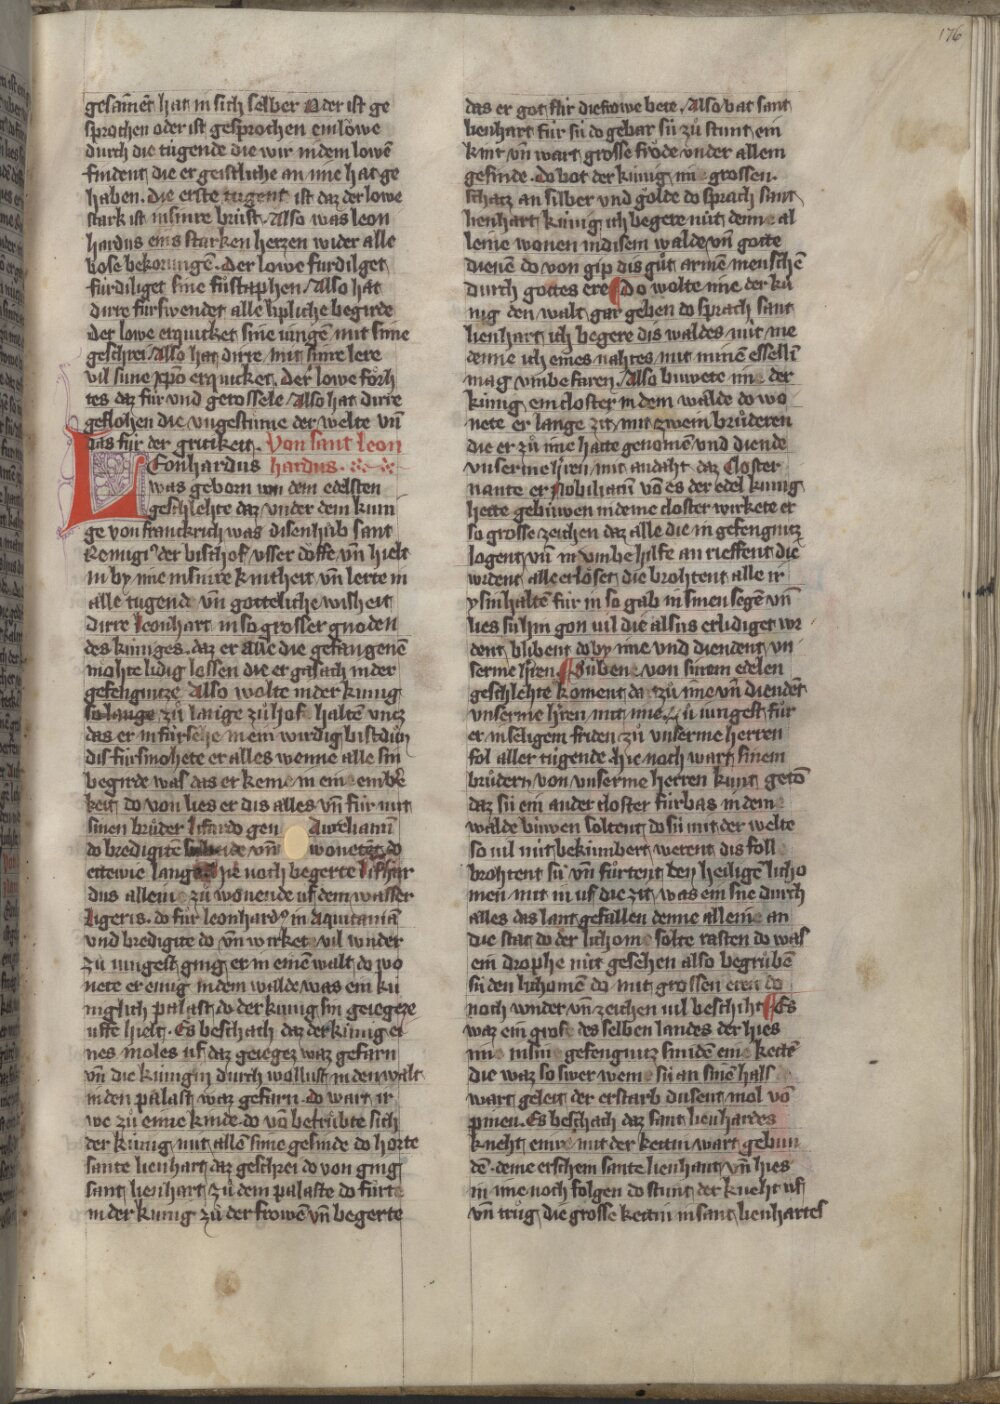 176
gesamēt hat in sich selber Oder ist ge
sprochen oder ist gesprochen ein löwe
durch die tugende die wir in dem lowē
findent die er geistliche an ime hat ge
haben. Die erste tugent ist daz der lowe
stark ist in sinre brust. Also was leon
hardus eins starken herzen wider alle
bose bekorungē. Der lowe furdilget
fürdiliget sine füstaphen. Also hat
dirre fürswendet alle liplliche begirde
Der lowe erquicket sine iungē mit sime
geschrei. Also hat dirre mit sinre lere
vil sune xp̄o erquicket. Der lowe förh
tes daz für und getossele. Also hat dirre
geflohen die vngestüme der welte vn̄
das für der gritikeit. Von sant leon
Leonhardus hardus.
was geborn von dem edelsten
geschlehte daz vnder dem kuni
ge von franckrich was disen hůb sant
Remigi⁹ der bischof vsser döffe vn̄ hielt
in by ime in sinre kintheit vn̄ lerte in
alle tugende vn̄ gotteliche wisheit
dirre leonhart in so grosser gnoden
des kuniges. daz er alle die gefangenē
mohte lidig lossen die er gesach in der
gefengnuze. Also wolte in der kunig
so lange zů lange zů hof haltē vntz
das er in fürsehe in eim wirdig bistdům
dis fürsmohete er alles wenne alle sin
begirde was das er keme in ein einbē
keit do von lies er dis alles vn̄ für mit
sinen brůder lifardo gen Aureliam
do bredigite vn̄ wonetent do
ettewie lange Hie noch begerte lifhar
dus allein zů wonende uf dem wasser
ligeris. do für leonhard⁹ in Aquitaniā
vnd bredigite do vn̄ wirket vil wnder
zů iungest ging er in einē walt do wo
nete er einig in dem walde was ein kü
niglich palast do der kunig sin geiegeze
uffe hielt. Es beschach daz der künig ei
nes moles uf daz geiegez waz gefarn
vn̄ die künigin durch wollust in den walt
in den palast waz gefarn. do wart ir
we zů eime kinde. do vō betrübte sich
der künig mit allē sime gesinde do horte
sante lienhart daz geschrei do von ging
sant lienhart zů dem palaste do fürte
in der kunig zů der frowē vn̄ begerte
das er got für die frowe bete. Also bat sant
lienhart für sü do gebar sü zů stunt ein
kint vn̄ wart grosse fröde vnder allem
gesinde. do bot der künig ime grossen
schatz an silber vnd golde do sprach sant
lienhart künig ich begere nüt denne al
leine wonen in disem walde vn̄ gotte
dienē do von gip dis gůt armē menschē
durch gottes ere Do wolte ime der kü
nig den walt gar geben do sprach sant
lienhart ich begere dis waldes nüt me
denne ich eines nahtes mit minē esselin
mag vmbe faren. Also buwete ime der
künig ein closter in dem walde do wo
nete er lange zit mit zwein brüderen
die er zů ime hatte genomē vnd diende
vnserme h̄ren mit andaht daz Closter
nante er Nobiliacū vō es der edel kunig
hette gebuwen in deme closter wirkete er
so grosse zeichen daz alle die in gefengnutz
logent vn̄ in vmbe hilfe an rieffent die
wrdent alle erlöset die brohtent alle ir
ysinhaltē für in so gab in sinen segē vn̄
lies sü hin gon vil die alsus erlidiget wr
dent blibent do by ime vnd diendent vn
serme h̄ren. Süben von sinem edelen
geschlehte koment da zů ime vn̄ diendēt
vnserme h̄ren mit ime. zů iungest für
er in seligem friden zů vnserme herren
fol aller tugende. Hie noch wart sinem
brüdern von vnserme herren kunt getō
daz sü ein ander closter fürbas in dem
walde buwen soltent do sü mit der welte
so vil nüt bekümbert werent dis foll
brohtent sü vn̄ fürtent den heiligē licho
men mit in uf die zit was ein sne durch
alles das lant gefallen denne alleine an
die stat do der lichome solte rasten do was
ein drophe nüt gesehen also begrůbē
sü den lichomē do mit grossen eren do
noch wnder vn̄ zeichen vil beschiht Es
waz ein grofe des selben landes der hies
ime in sine gefengnutz smidē eine kettē
die waz so swer weme sü an sinē hals
wart geleit der erstarb dusent mol vō
pinen. Es beschach daz sant lienhardes
kneht eime mit der kettin wart gebun
dē. deme erschein sante lienhart vn̄ hies
in ime noch folgen do stunt der kneht uf
vn̄ trůg die grosse kettin in sant lienhartes